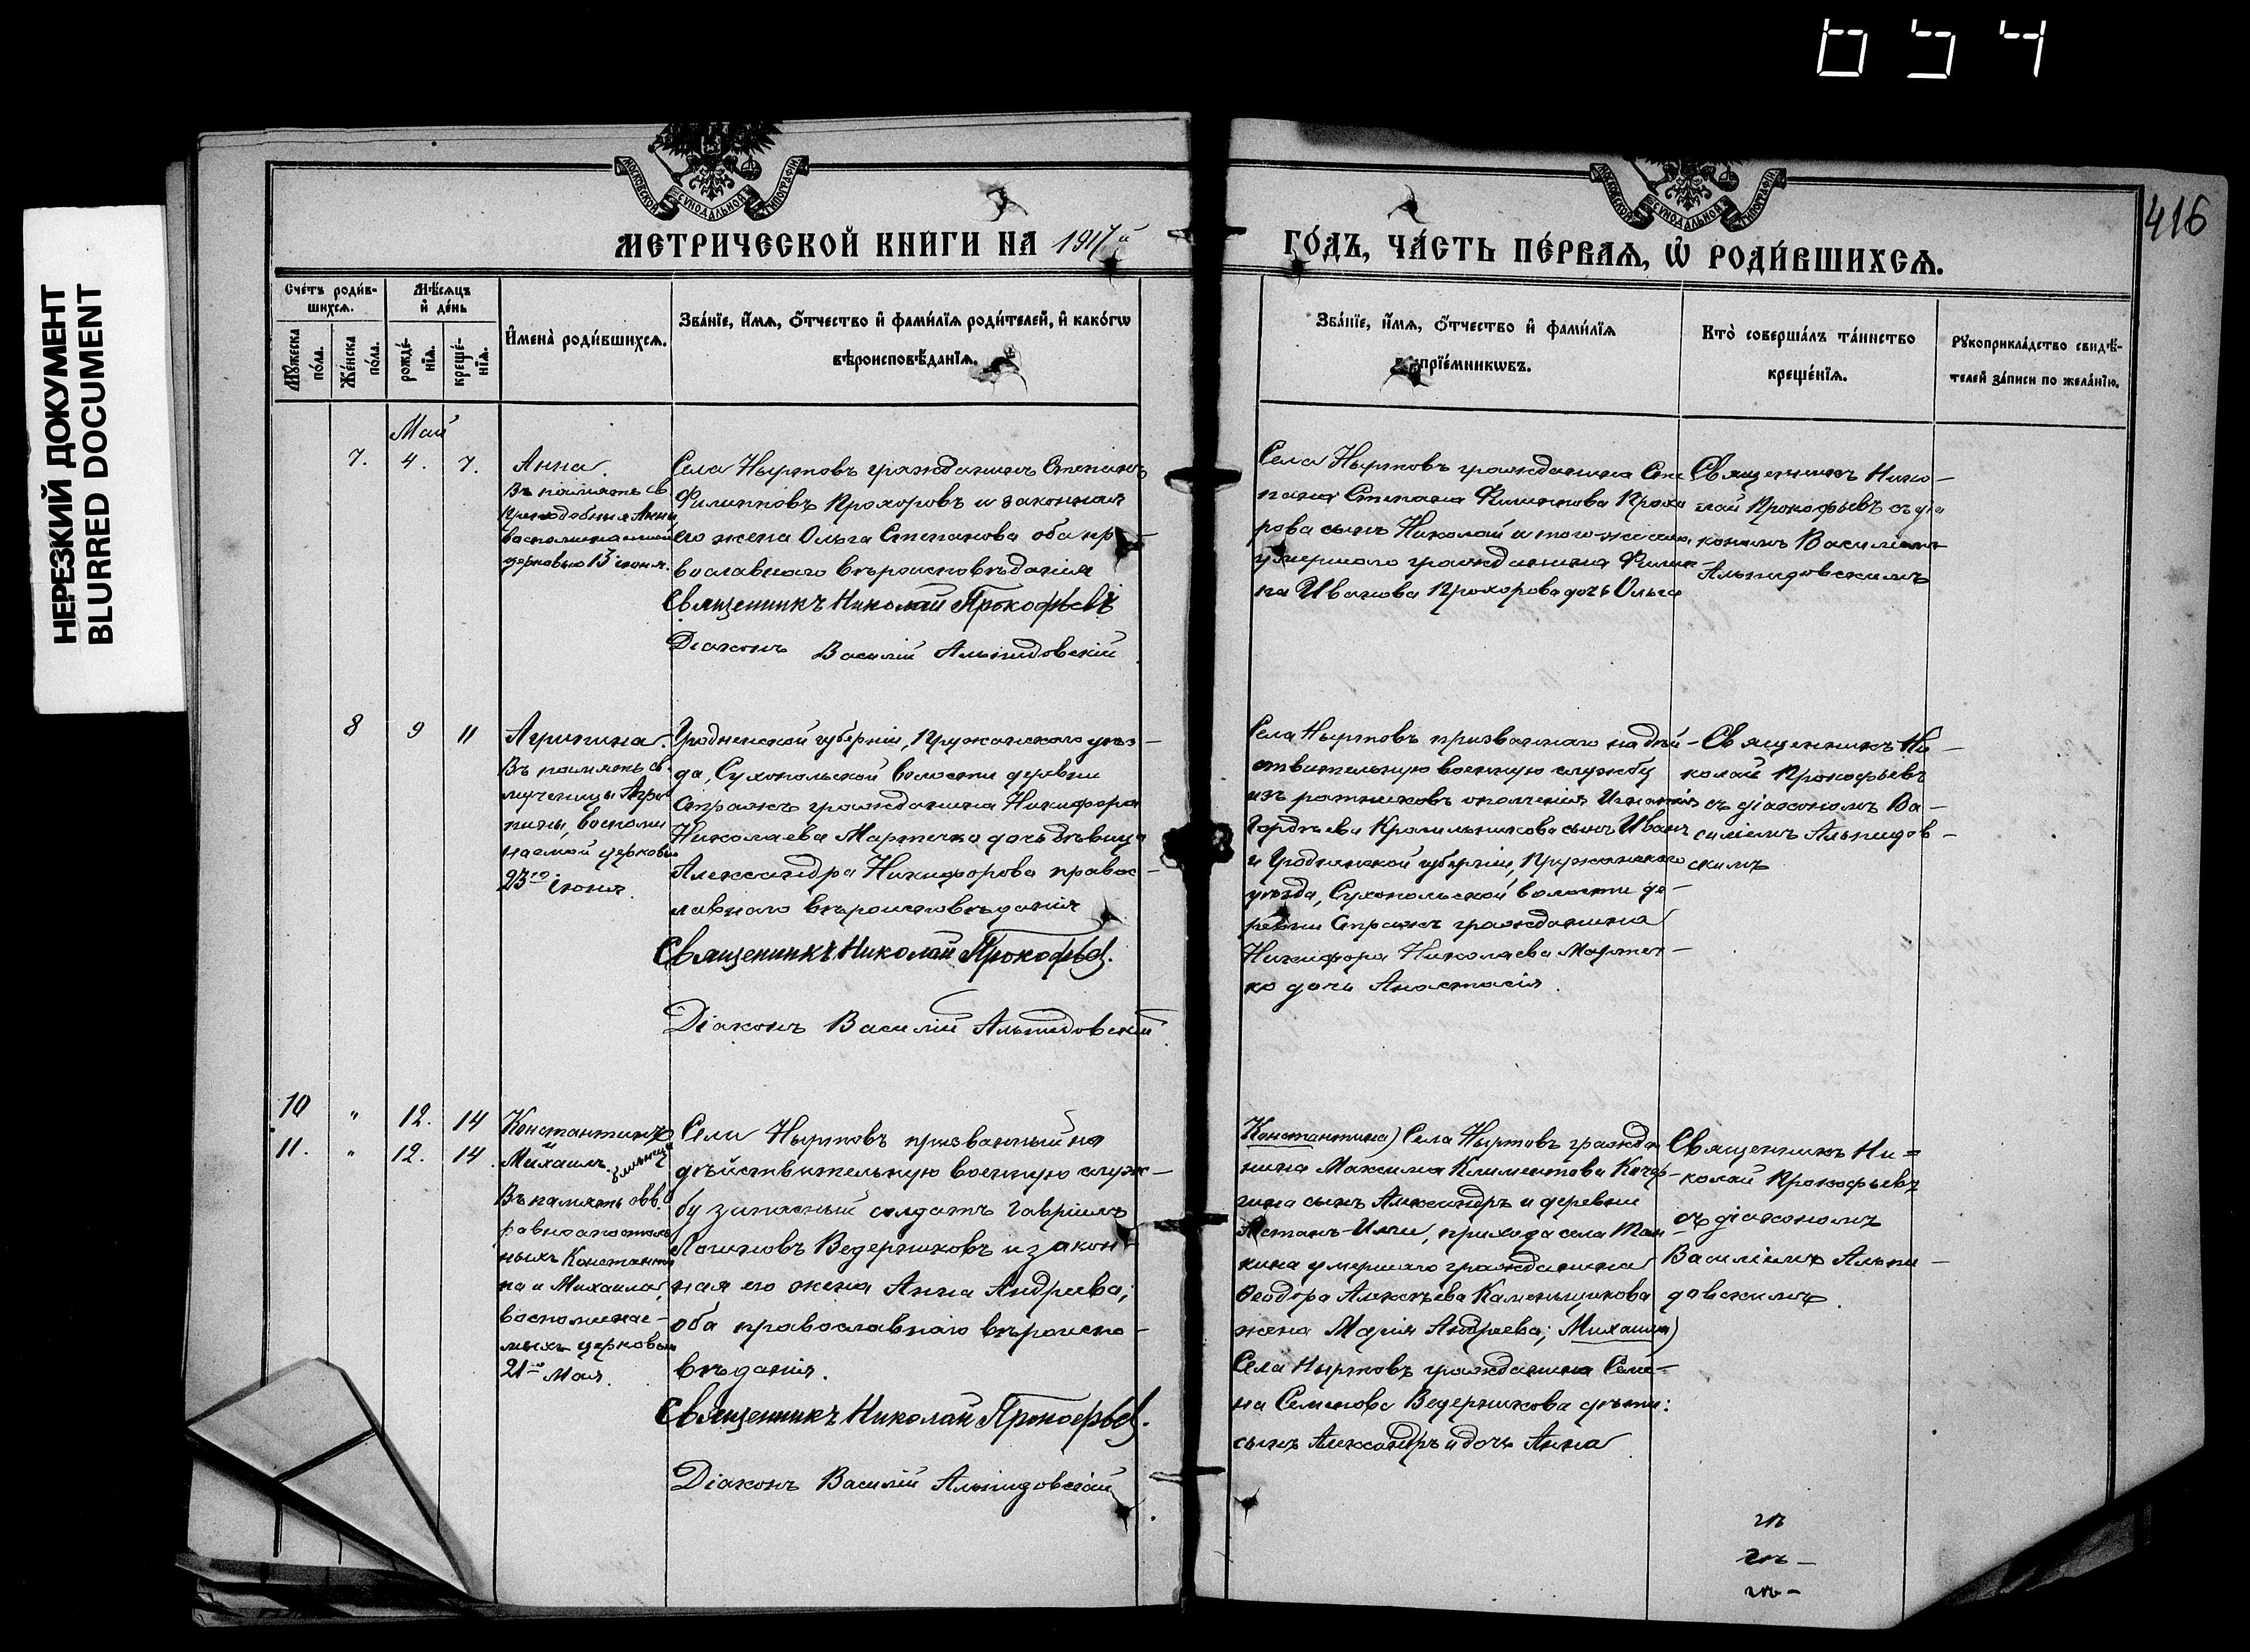 654
НЕРЕЗКИЙ ДОКУМЕНТ
BLURRED DOCUMENT
МОСКОВСКОЙ СѴНОДАЛЬНОЙ ТИПОГРАФІИ
МОСКОВСКОЙ СѴНОДАЛЬНОЙ ТИПОГРАФІИ
416
МЕТРИЧЕСКОЙ КНИГИ НА 1917й
ГО́ДЪ, ЧА́СТЬ ПЕ́РВАѦ, Ѽ РОДИ́ВШИХСѦ.
Сче́тъ роди́в-
шихсѧ.
Мѣ́сѧцъ
и҆ де́нь
Мꙋ́жеска
по́ла.
Же́нска
по́ла.
рожде́-
нїѧ.
креще́-
нїѧ.
И҆мена̀ роди́вшихсѧ.
Зва́нїе, и҆́мѧ, ѻ҆́тчество и҆ фами́лїѧ роди́телей, и҆ како́гѡ
вѣроисповѣ́данїѧ.
Зва́нїе, и҆́мѧ, ѻ҆́тчество и҆ фами́лїѧ
воспрїе́мникѡвъ.
Кто̀ соверша́лъ та́инство
креще́нїѧ.
Рꙋкоприкла́дство свидѣ́-
телей за́писи по жела́нїю.
Май
7. 4. 7.
Анна.
Въ память св.
Преподобныя Анны
воспоминаемой
церковью 13 іюня.
Села Ныртовъ гражданинъ Степанъ
Филипповъ Прохоровъ и законная
его жена Ольга Степанова оба пра
вославнаго вѣроисповѣданія
Священникъ Николай Прокофьевъ
Діаконъ Василій Альпидовскій
Села Ныртовъ гражданина Сте
пана Степана Филиппова Прохо
рова сынъ Николай и того-же села
умершаго гражданина Филип
па Иванова Прохорова дочь Ольга
Священникъ Нико-
лай Прокофьевъ съ діа
кономъ Василіемъ
Альпидовскимъ
8 9 11
Агрипина.
Въ память св.
мученицы Агри
пины, воспоми
наемой церковью
23го іюня.
Гродненской губерніи, Пружанскаго уѣз-
да, Сухопольской волости деревни
Стражъ гражданина Никифора
Николаева Мартечко дочь дѣвица
Александра Никифорова правос-
лавнаго вѣроисповѣданія
Священникъ Николай Прокофьевъ.
Діаконъ Василій Альпидовскій
Села Ныртовъ призваннаго на дѣй-
ствительную военную службу
изъ ратниковъ ополченія Игнатія
Гордѣева Красильникова сынъ Иванъ
и Гродненской губерніи, Пружанскаго
уѣзда, Сухопольской волости де-
ревни Стражъ гражданина
Никифора Николаева Мартеч-
ко дочь Анастасія.
Священникъ Ни-
колай Прокофьевъ
съ діакономъ Ва-
силіемъ Альпидов-
скимъ
10 " 12. 14
11. " 12. 14.
Константинъ
и
Михаилъ. близнецы
Въ память свв.
равноапостоль
ныхъ Константи
на и Михаила,
воспоминае-
мыхъ церковью
21го Мая.
Села Ныртовъ призванный на
дѣйствительную военную служ-
бу запасный солдатъ Гавріилъ
Логиновъ Ведерниковъ и закон-
ная его жена Анна Андреева;
оба православнаго вѣроиспо-
вѣданія.
Священникъ Николай Прокофьевъ.
Діаконъ Василій Альпидовскій
Константина) Села Ныртовъ гражда
нина Максима Климентова Кочер-
гина сынъ Александръ и деревни
Астанъ-Илги, прихода села Тан
кина умершаго гражданина
Ѳеодора Алексѣева Каменьщикова
жена Марія Андреева; Михаила)
Села Ныртовъ гражданина Семе-
на Семенова Ведерникова дѣти:
сынъ Александръ и дочь Анна
Священникъ Ни=
колай Прокофьевъ
съ діакономъ
Василіемъ Альпи-
довскимъ.